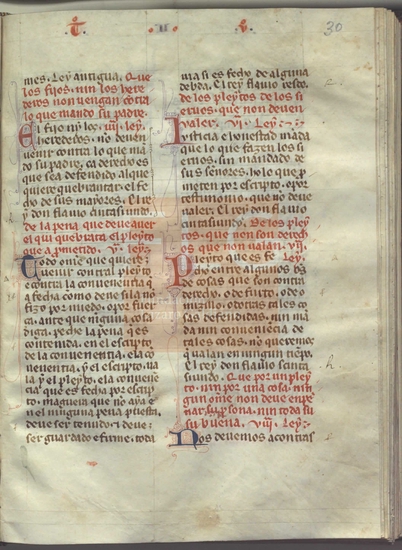 T
II
V
30
mes. Ley antigua. Que
los fijos, nin los here
deros non vengan contra
lo que mando su padre.
El fijo ny los iiij. ley.
herederos, no deven
venir contra lo que ma
do su padre, ca derecho es
que sea defendido, al que
quiere quebrantar, el fe
cho de sus mayores. El re
y don flavio
de la pena que deve aver
el qui quebranta el pleyto
que a prometido. v. ley.
Todo ome que quiere
venir contral pleyto
o contra la convenentia q
a fecha como deve si la no
fizo por miedo, o por fuer
ca, ante que ninguna cosa
diga, peche la pena que es
contenida, en el escripto
de la convenentia, e la co
nvenentia, y el escripto, va
la y el pleyto, e la convenen
cia que es fecha por escrip
to, maguera que no aya e
n el ninguna pena puesta,
deve ser tenudo, e deve
ser guardado e firme, toda
via si es fecho de alguna
debda. El rey flavio resc.
de los pleytos de los si
ervos, que non deven
valer. VI. Ley.
Iusticia e honestad mada
que lo que fazen los si
ervos, sin mandado de
sus señores, ho lo que pro
meten por escripto, o por
testimonio, que no deve
valer. El rey don flavio
De los pley
tos, que non son derech
os que non valan. vij.
Pleyto que es fe Ley.
cho entre algunos
de cosas que son contra
derecho, o de furto, o de o
mizilio, o dotras males co
sas defendidas, nin ma
da nin conveniencia de
tales cosas, no queremos
que valan en ningun tiempo.
El rey don flavio
Que por un pley
to, nin por una cosa, nin
gun ome non deve enpe
nar, su persona, nin toda su
su buena. VIII. Ley.
Nos devemos acontras